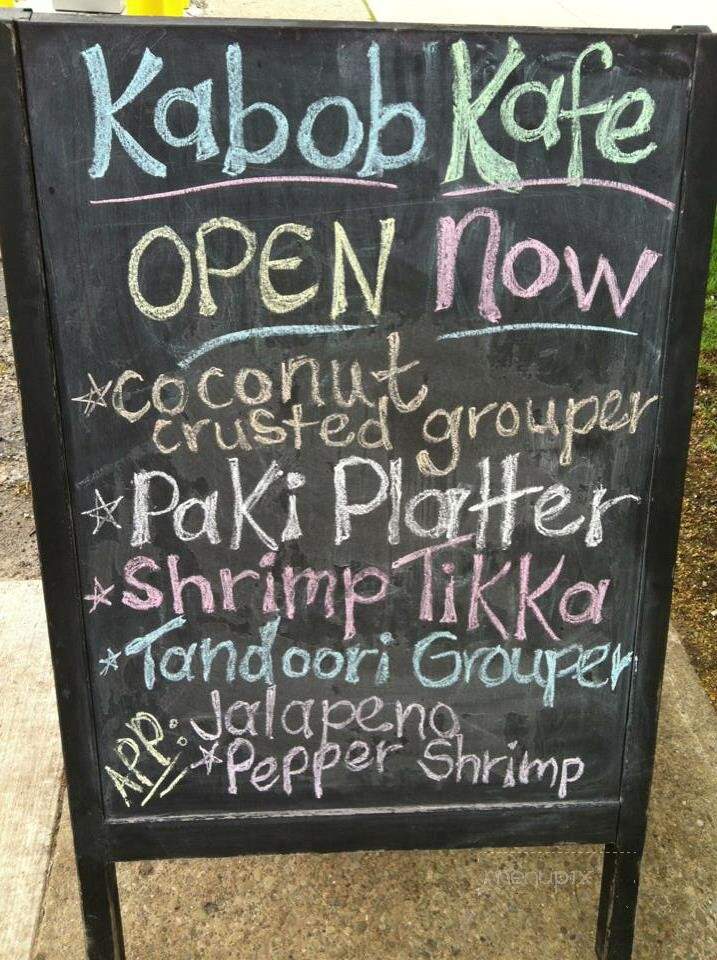 Kabob Kafe
OPEN Now
*coconut
crusted grouper
*Paki Platter
*Shrimp Tikka
*Tandoori Grouper
APP: Jalapeno
*Pepper Shrimp
menupix